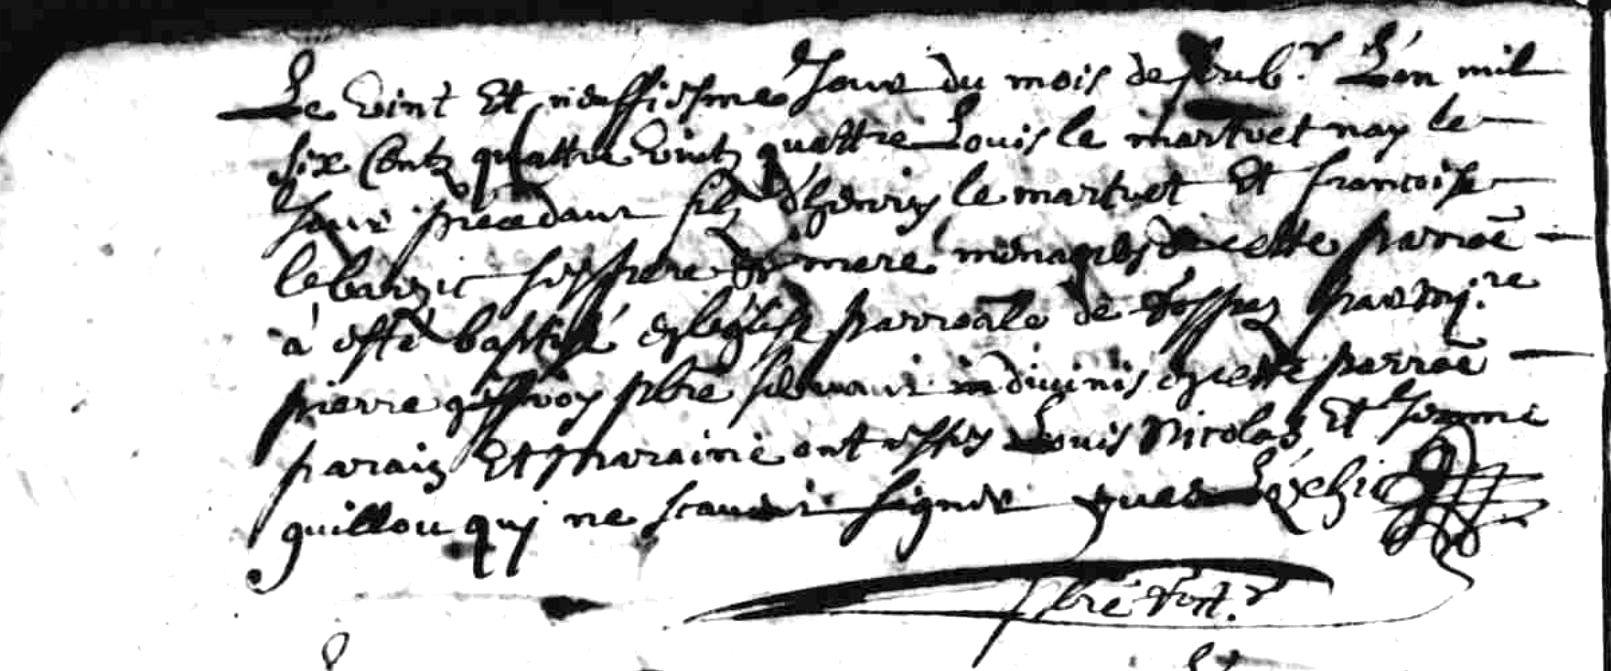 Le vint et neuffiesme Jour du mois de L'an mil
six Centz quattre vintz quattre Louis le martret nay le
Jour precedant filz d'henry le martret Et francoise
le barzic ses pere et mere menagers de cette parroē
à esté baptisé en leglise parroāle de par
pierre pbrē in divinis en cette parroē
parain Et maraine ont estes Louis Nicolas Et Jeanne
guillou qui ne scavent signer yves
pbrē